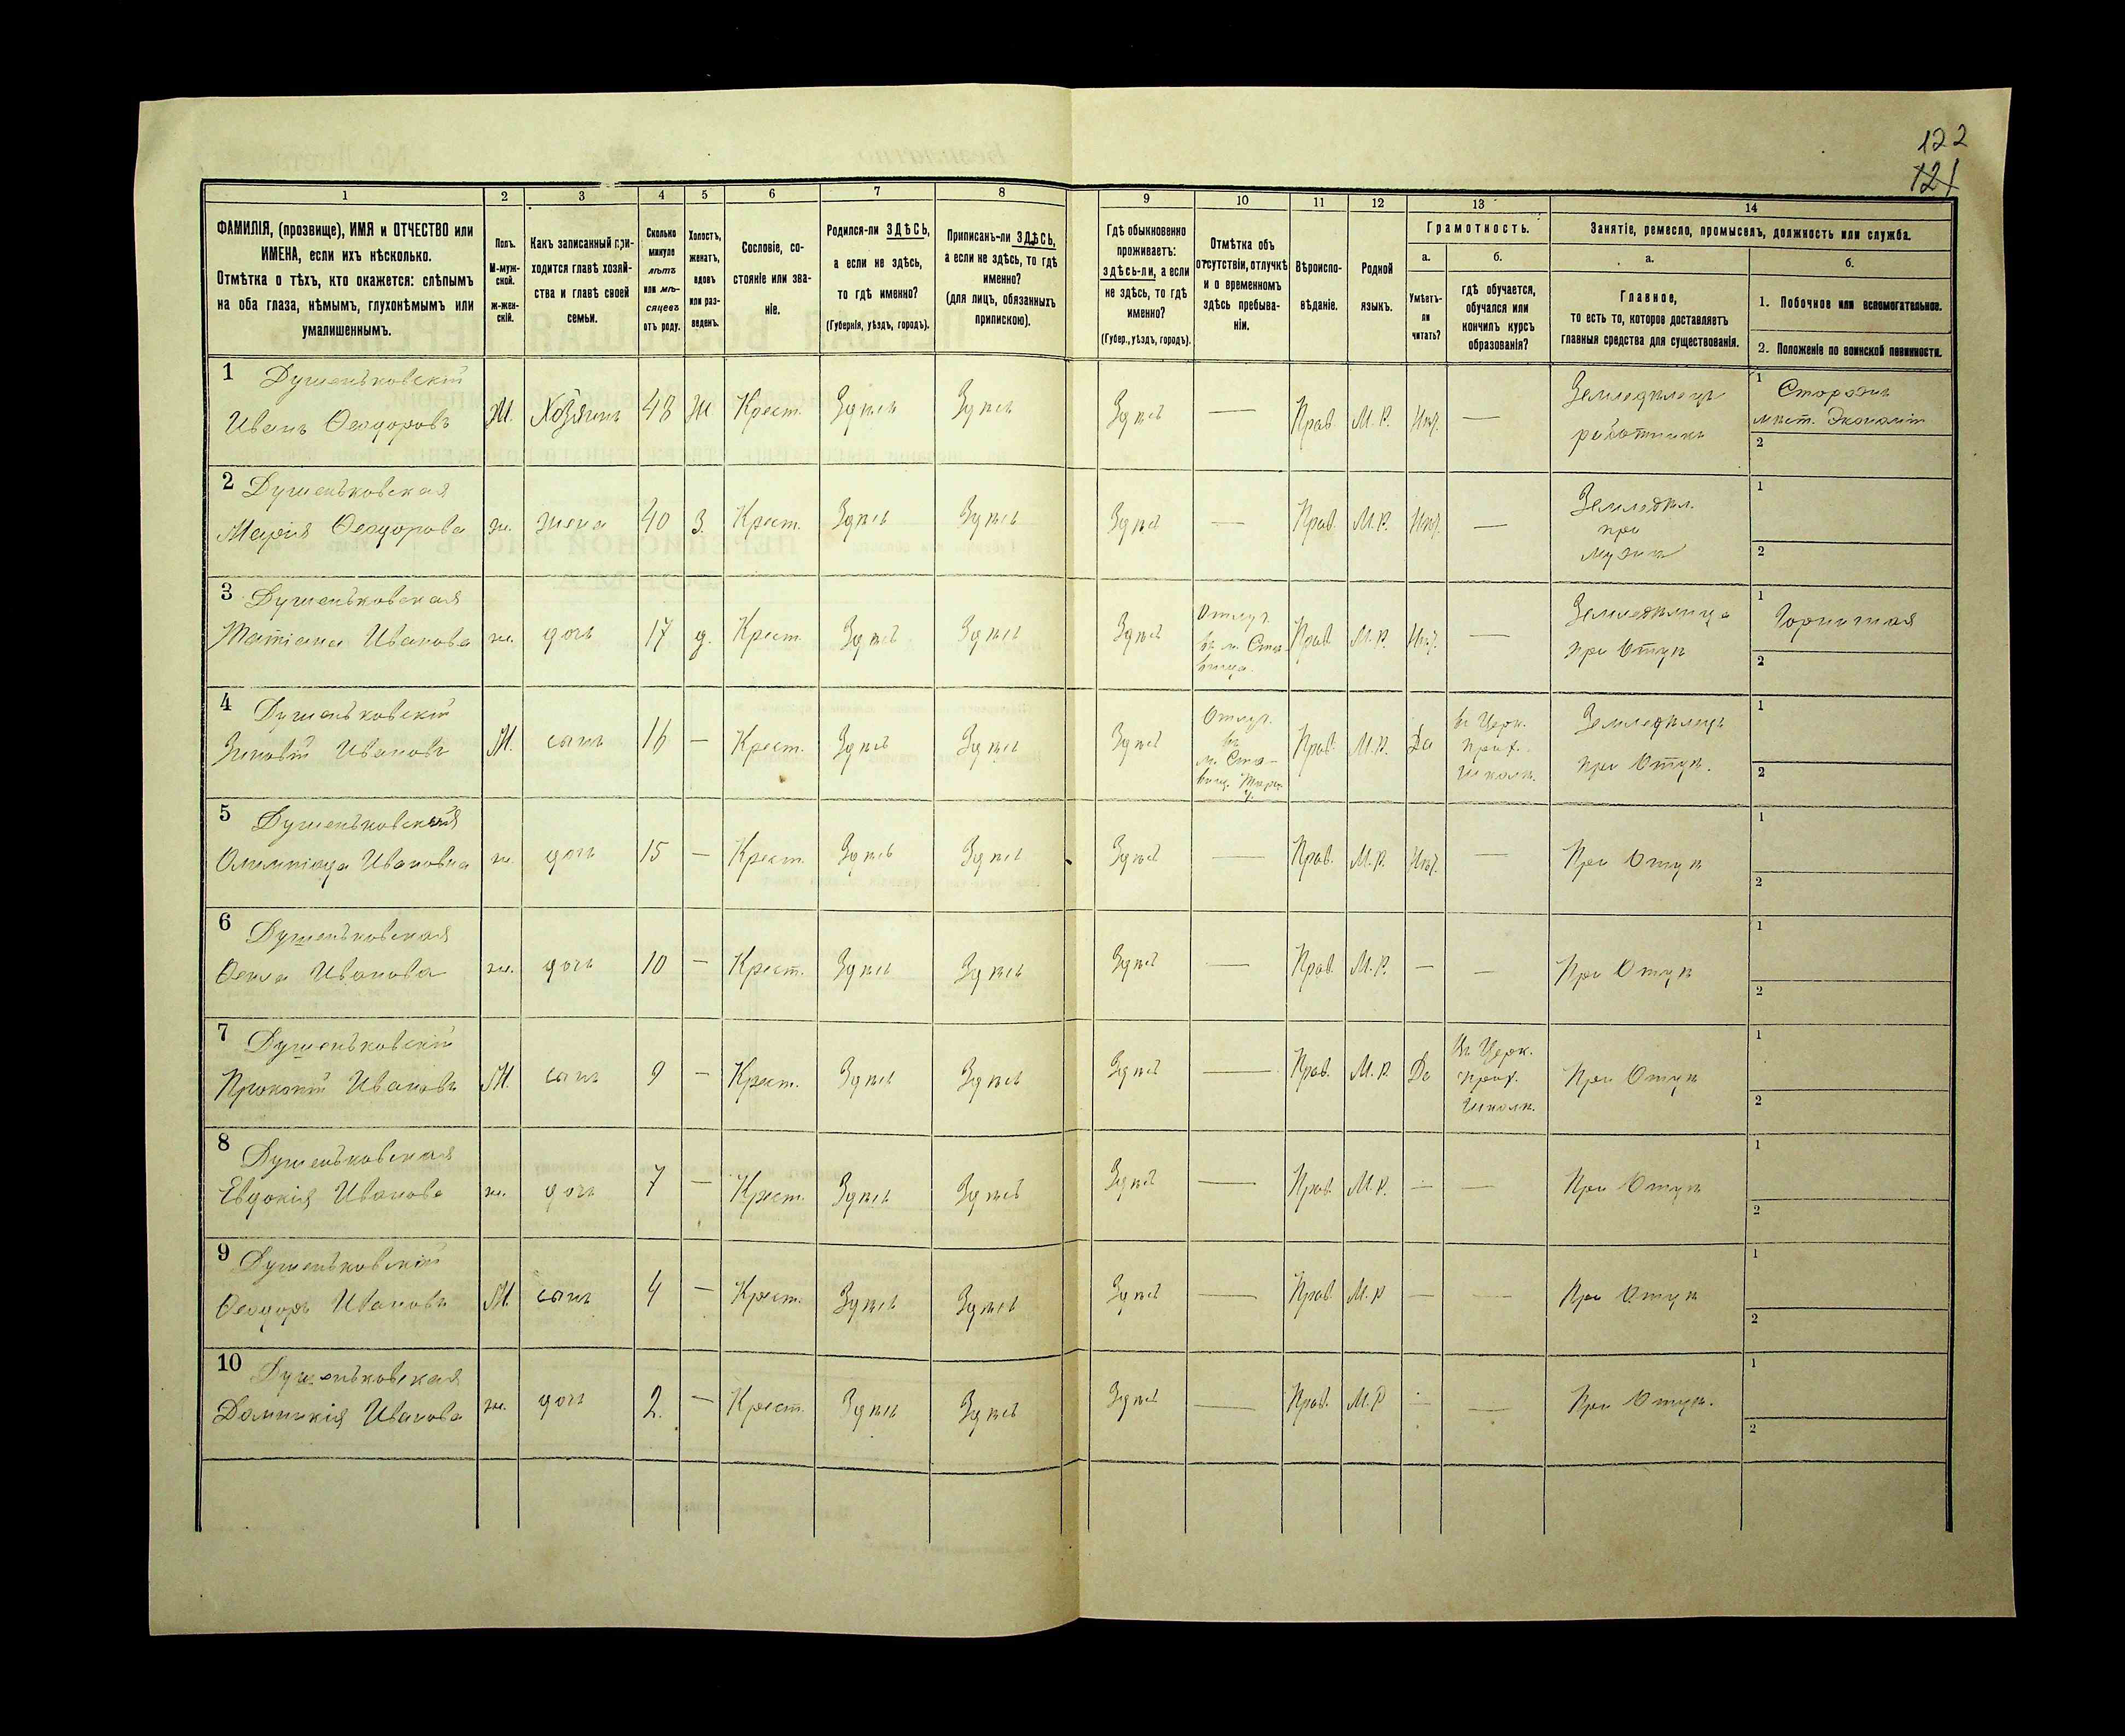 122
121
1
2
3
4
5
6
7
8
9
10
11
12
13
14
ФАМИЛІЯ, (прозвище), ИМЯ и ОТЧЕСТВО или
ИМЕНА, если ихъ нѣсколько.
Отмѣтка о тѣхъ, кто окажется: слѣпымъ
на оба глаза, нѣмымъ, глухонѣмымъ или
умалишеннымъ.
Полъ.
М-муж-
ской.
ж-жен-
скій.
Какъ записанный при-
ходится главѣ хозяй-
ства и главѣ своей
семьи.
Сколько
минуло
лѣтъ
или мѣ-
сяцевъ
отъ роду.
Холостъ,
женатъ,
вдовъ
или раз-
веденъ.
Сословіе, со-
стояніе или зва-
ніе.
Родился-ли ЗДѢСЬ,
а если не здѣсь,
то гдѣ именно?
(Губернія, уѣздъ, городъ).
Приписанъ-ли ЗДѢСЬ,
а если не здѣсь, то гдѣ
именно?
(для лицъ, обязанныхъ
припискою).
Гдѣ обыкновенно
проживаетъ:
здѣсь-ли, а если
не здѣсь, то гдѣ
именно?
(Губер., уѣздъ, городъ).
Отмѣтка объ
отсутствіи, отлучкѣ
и о временномъ
здѣсь пребыва-
ніи.
Вѣроиспо-
вѣданіе.
Родной
языкъ.
Грамотность.
а.
Умѣетъ-
ли
читать?
б.
гдѣ обучается,
обучался или
кончилъ курсъ
образованія?
Занятіе, ремесло, промыселъ, должность или служба.
а.
Главное,
то есть то, которое доставляетъ
главныя средства для существованія.
б.
1. Побочное или вспомогательное.
2. Положеніе по воинской повинности.
1 Душеньковскій
Иванъ Ѳеодоровъ
М. Хозяинъ 48 Ж Крест. Здѣсь Здѣсь Здѣсь — Прав. М. Р. Нѣт. —
Земледѣлецъ
работникъ
1 Сторожъ
мѣст. Экономіи
2
2 Душеньковская
Марія Ѳеодорова
ж. жена 40 З. Крест. Здѣсь Здѣсь Здѣсь — Прав. М. Р. Нѣт. —
Земледѣл.
при
мужѣ
1
2
3 Душеньковская
Татіана Иванова
ж. дочь 17 д. Крест. Здѣсь Здѣсь Здѣсь
Отлуч.
въ м. Ста-
вища.
Прав. М. Р. Нѣт. —
Земледѣлица
при Отцѣ
1 Горничная
2
4 Душеньковскій
Зиновій Ивановъ
М. сынъ 16 — Крест. Здѣсь Здѣсь Здѣсь
Отлуч.
въ
м. Ста-
вищ. Тара.
у.
Прав. М. Р. Да
въ Церк.
Прих.
Школѣ.
Земледѣлецъ
при Отцѣ.
1
2
5 Душеньковская
Олимпіада Ивановна
ж. дочь 15 — Крест. Здѣсь Здѣсь Здѣсь — Прав. М. Р. Нѣт. — При Отцѣ
1
2
6 Душеньковская
Ѳекла Иванова
ж. дочь 10 — Крест. Здѣсь Здѣсь Здѣсь — Прав. М. Р. — — При Отцѣ
1
2
7 Душеньковскій
Прокопій Ивановъ
М. сынъ 9 — Крест. Здѣсь Здѣсь Здѣсь — Прав. М. Р. Да
Въ Церк.
Прих.
Школѣ.
При Отцѣ
1
2
8 Душеньковская
Евдокія Иванова
ж. дочь 7 — Крест. Здѣсь Здѣсь Здѣсь — Прав. М. Р. — — При Отцѣ
1
2
9 Душеньковскій
Ѳеодоръ Ивановъ
М. сынъ 4 — Крест. Здѣсь Здѣсь Здѣсь — Прав. М. Р — — При Отцѣ
1
2
10 Душеньковская
Домникія Иванова
ж. дочь 2. — Крест. Здѣсь Здѣсь Здѣсь — Прав. М. Р — — При Отцѣ.
1
2